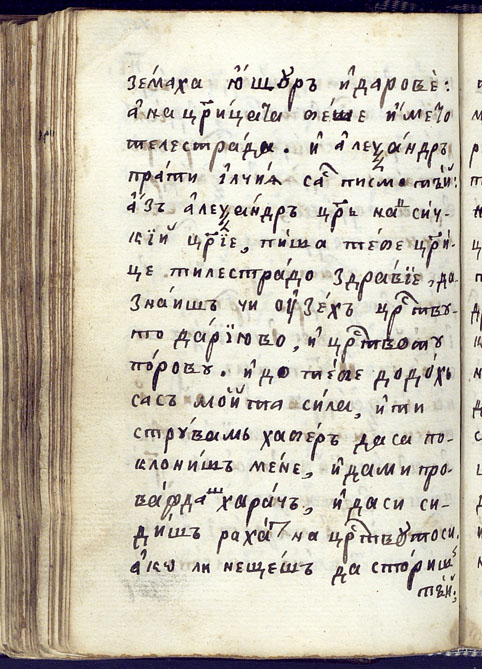 зе́маха ю҆щꙋръ и҆ дарове̏:
а҆ на цр҃ица́та бе́ше и҆́мето
телестра́да. и҆ а҆леѯа́ндръ
пра́ти ѐлчиѧ са̀с писмо тъ́й:
а҆́зъ а҆леѯа́ндръ цр҃ь на си́ч-
кїй цр҃їе, пи́ша те́бе цр҃и-
це тилестра́до здра́вїе, да
зна́ишъ чи оу҆зе́хъ цр҃тву-
то да́рїюво, и҆ цр҃твоту
по́рову. и҆ до те́бе додо́хь
сасъ мо́йта си́ла, и҆ ти
стру́вамь хабе́ръ да са по-
клони́шъ ме́не, и҆ да ми про-
ва́ждашъ хара́чъ, и҆ да си си-
ди́шъ раха́т на цр҃твутоси.
а҆ко ли не́щешъ да сто́ришъ
тъ́й;